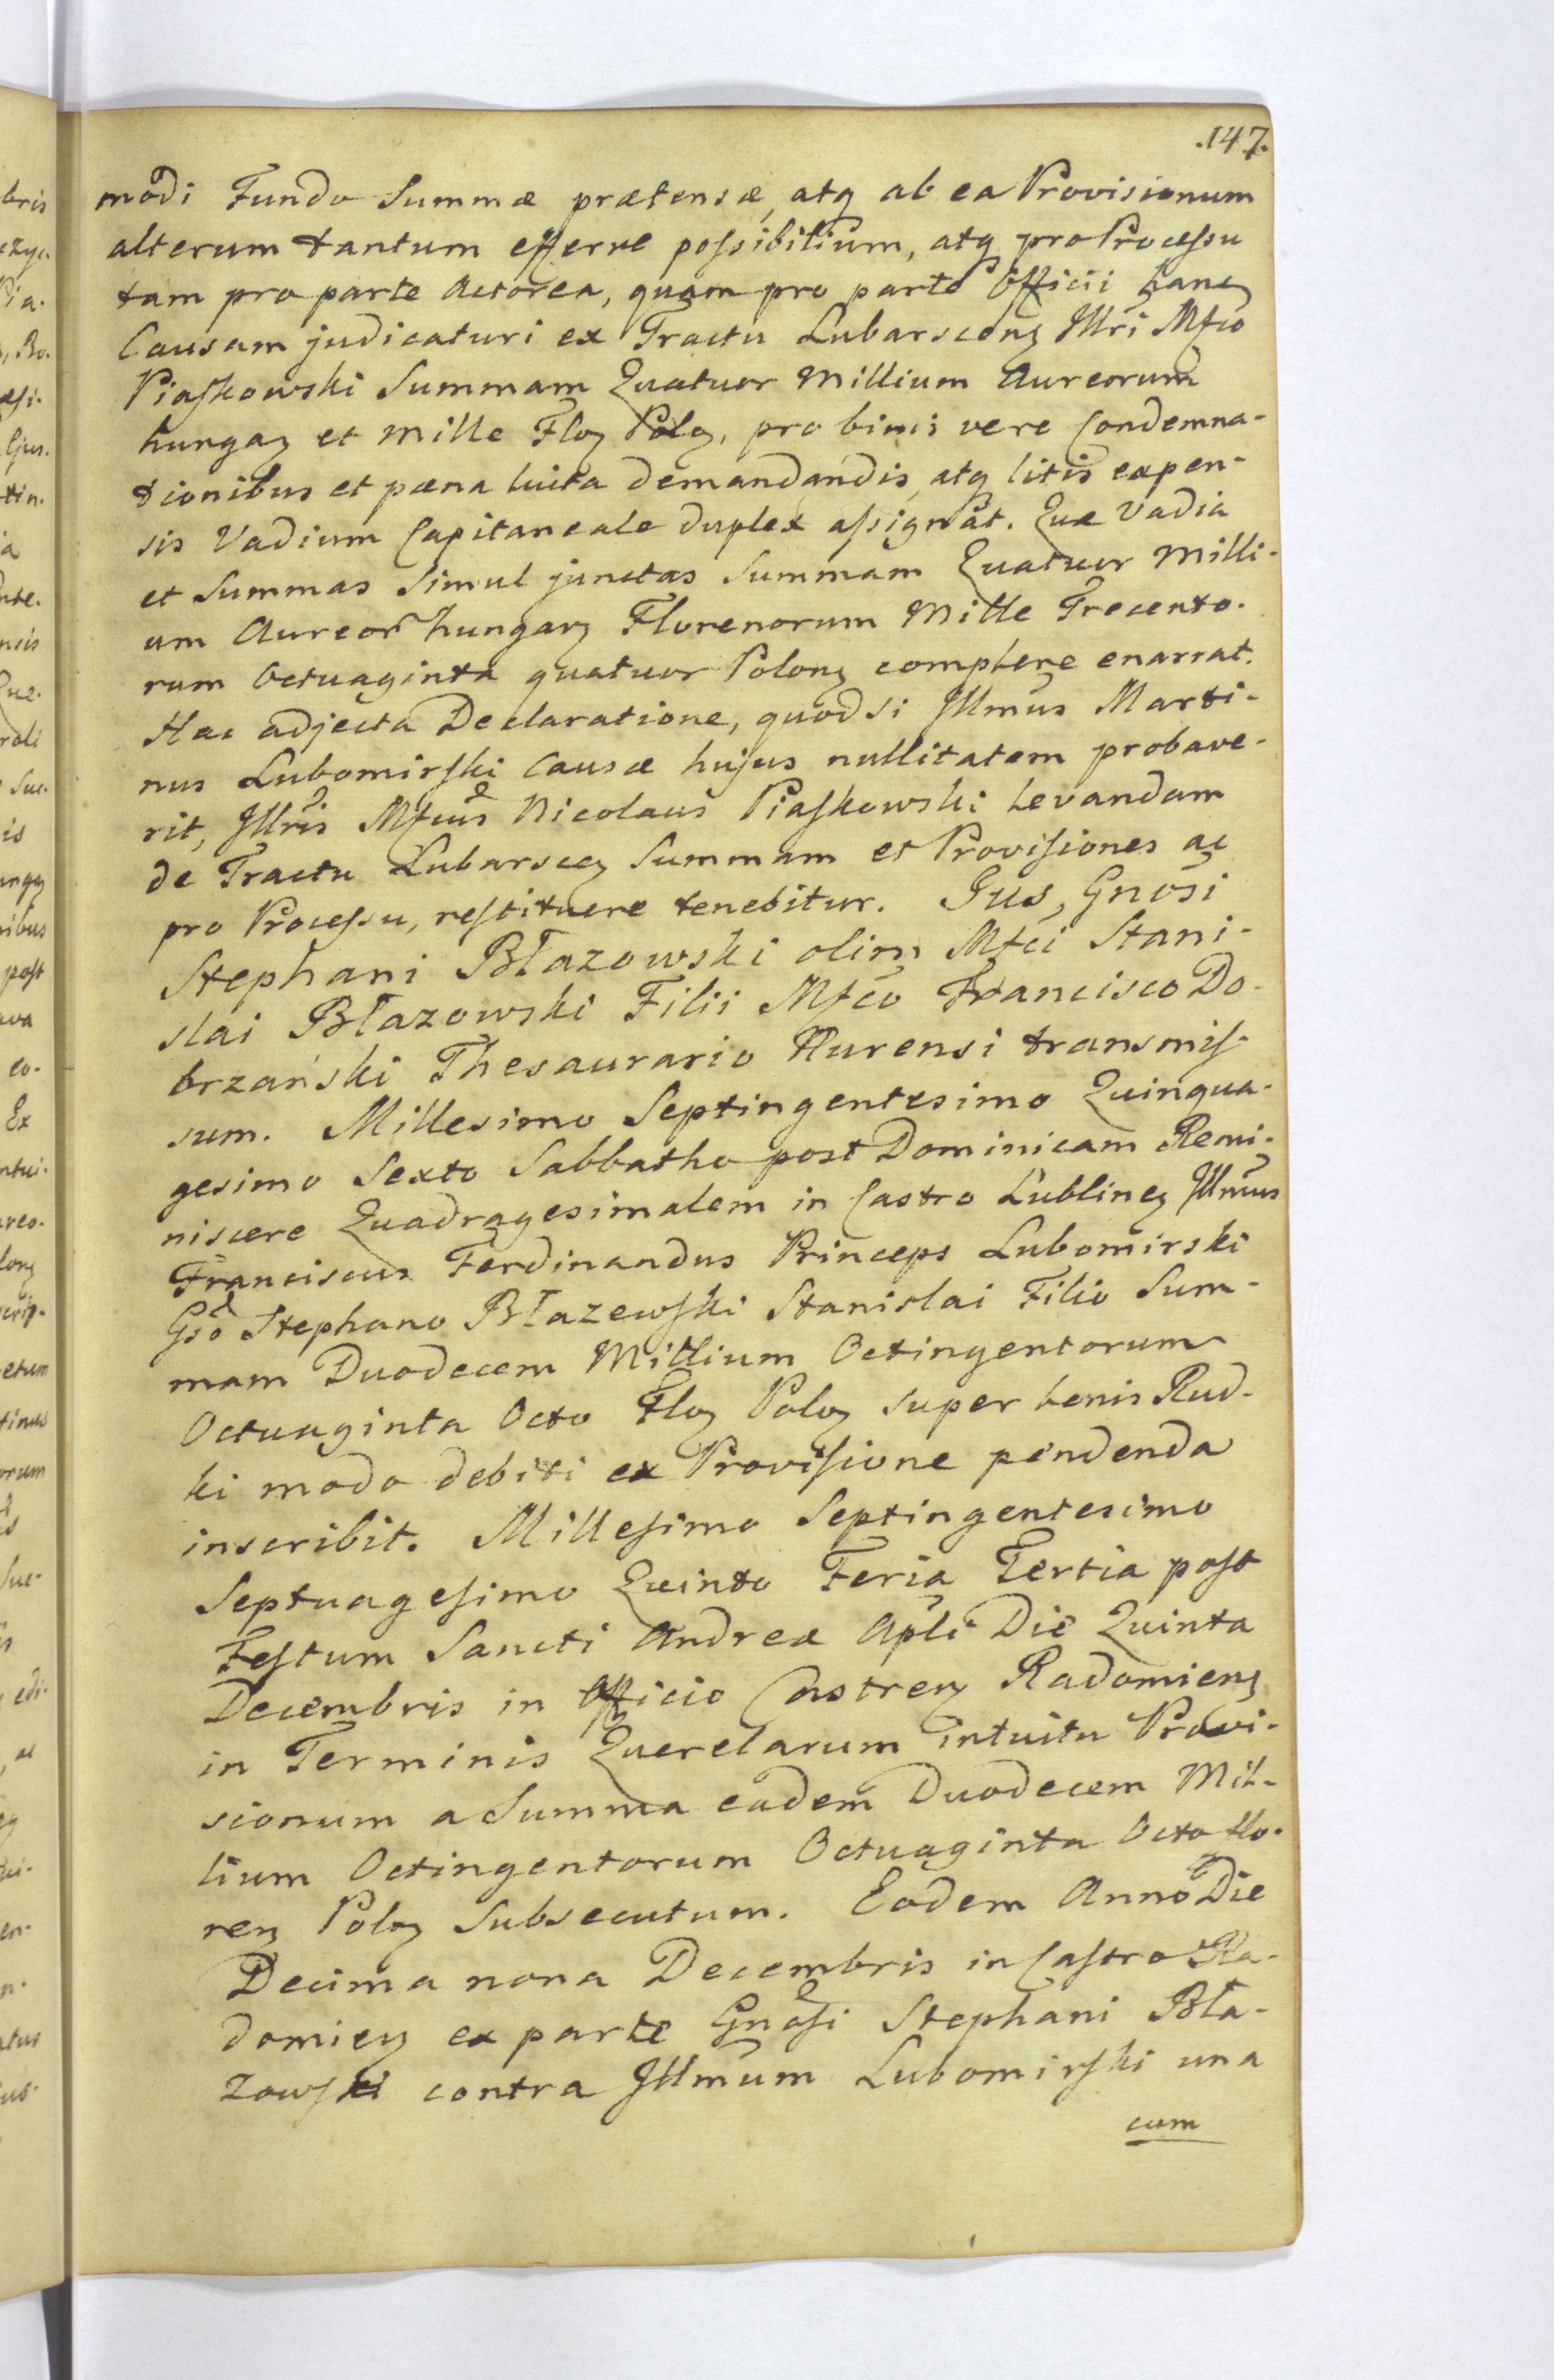 .147.
modi Fundo Summæ prætensæ, atq ab ea Provisionum
alterum tantum efferre poſsibilium, atq pro Proceſsu
tam pro parte Actorea, quam pro parte Officii hanc
Causam judicaturi ex Tractu Lubarscenz Jllri Mfco
Piaſkowski Summam Quatuor Millium Aureorum
hungaz et Mille Floz Poloz, pro binis vere Condemna-
tionibus et pæna luita demandandis, atq litis expen-
sis Vadium Capitaneale duplex aſsignat. Quæ Vadia
et Summas Simul junctas Summam Quatuor Milli-
um Aureor hungarz Florenorum Mille Trecento-
rum Octuaginta quatuor Polonz complere enarrat.
Hac adjecta Declaratione, quod si Jllmus Marti-
nus Lubomirſki Causæ hujus nullitatem probave-
rit, Jllris Mfcus Nicolaus Piaſkowski levandam
de Tractu Lubarscez Summam et Proviſiones ac
pro Proceſsu, reſtituere tenebitur. Jus, Gnosi
Stephani Błazowski olim Mfci Stani-
slai Błazowski Filii Mfco Francisco Do-
brzański Thesaurario Hurensi transmiſ-
sum. Millesimo Septingentesimo Quinqua-
gesimo Sexto Sabbatho post Dominicam Remi-
niscere Quadragesimalem in Castro Lublinez Jllmus
Franciscus Ferdinandus Princeps Lubomirski
Gso Stephano Błazewſki Stanislai Filio Sum-
mam Duodecem Millium Octingentorum
Octuaginta Octo Floz Poloz super bonis Rud-
ki modo debiti ex Proviſione pendenda
inscribit. Milleſimo Septingentesimo
Septuageſimo Quinto Feria Tertia poſt
Feſtum Sancti Andreæ Apli Die Quinta
Decembris in Officio Castrenz Radomienz
in Terminis Querelarum intuitu Provi-
sionum a Summa eadem Duodecem Mil-
lium Octingentorum Octuaginta Octo flo-
renz Poloz Subsecutum. Eodem Anno Die
Decima nona Decembris in Caſtro Ra-
domienz ex parte Gnoſi Stephani Bła-
zowſki contra Jllmum Lubomirſki una
cum